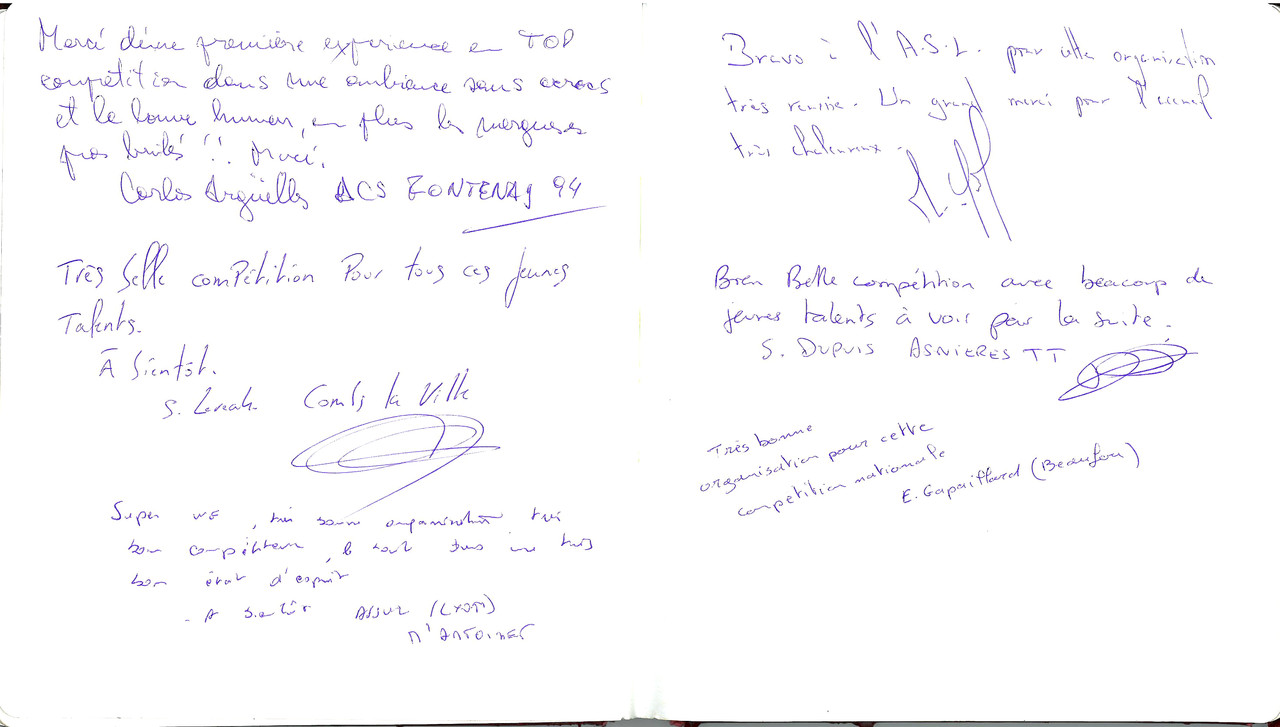 Merci d'une première expérience en TOP
compétition dans une ambience sans
et la bonne humeur, en plus les mergueses
pas brulés !! Merci.
Carlos Argüelles ACS FONTENAY 94
Très Belle compétition Pour tous ces jeunes
Talents.
À Bientôt.
S. Combs la Ville
Super WE, très bonne organisation très
bon compétiteurs, le tout dans un très
bon état d'esprit
A Bientôt ASSUL (LYON)
D'ANTOINET
Bravo à l'A.S.L. pour cette organisation
très réussie. Un grand merci pour l'accueil
très chaleureux.
Bien Belle compétition avec beacoup de
jeunes talents à voir pour la suite.
S. DUPUIS ASNIERES TT
Très bonne
organisation pour cette
compétition nationale
E. Gapaillard (Beaufou)